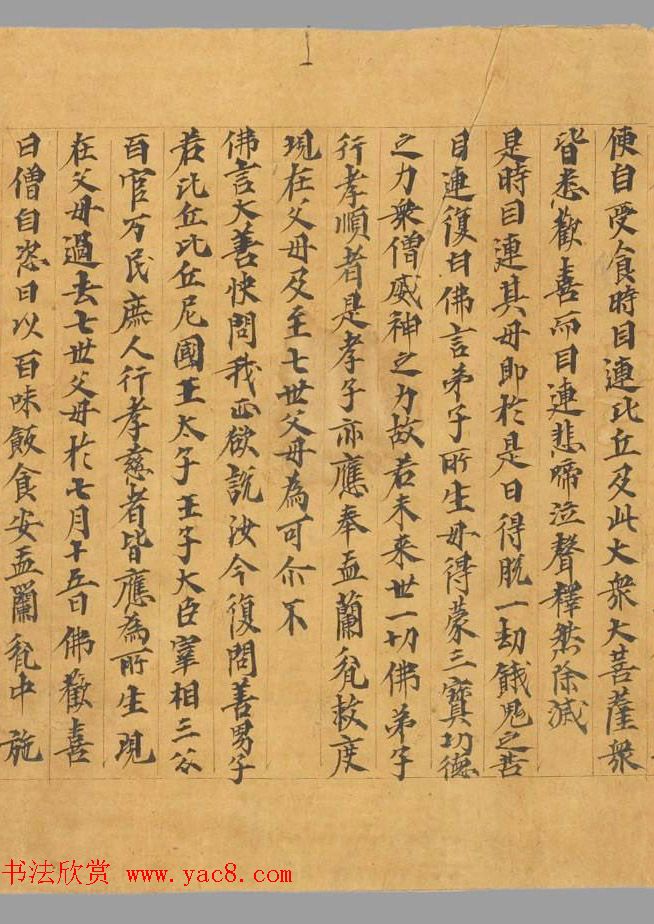 便自受食時目連比丘及此大衆大菩薩衆
皆悉歡喜而目連悲啼泣聲釋然除滅
是時目連其母即於是日得脫一劫餓鬼之苦
目連復白佛言弟子所生母得蒙三寶功德
之力衆僧威神之力故若未來世一切佛弟子
行孝順者是孝子亦應奉盂蘭瓫救度
現在父母及至七世父母為可尒不
佛言大善快問我正欲說汝今復問善男子
若比丘比丘尼國王太子王子大臣宰相三公
百官万民庶人行孝慈者皆應為所生現
在父母過去七世父母於七月十五日佛歡喜
日僧自恣日以百味飯食安盂蘭瓫中施
书法欣赏 www.yac8.com